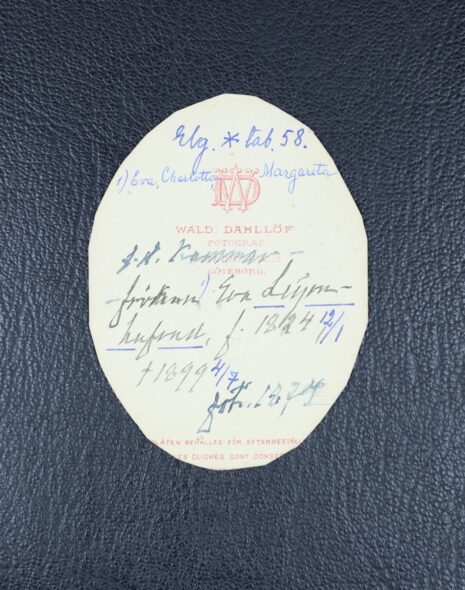 Elg. * tab. 58.
1) Eva, Charlotta, Margareta
WD
WALD: DAHLLÖF
FOTOGRAF
GÖTEBORG.
f.d. Kammar-
fröken 1) Eva Leijon-
hufvud, f. 1824 12/1
† 1899 4/7
fot. 1874
PLÅTEN BEHÅLLES FÖR EFTERBESTÄLL
LES CLICHÉS SONT CONSER